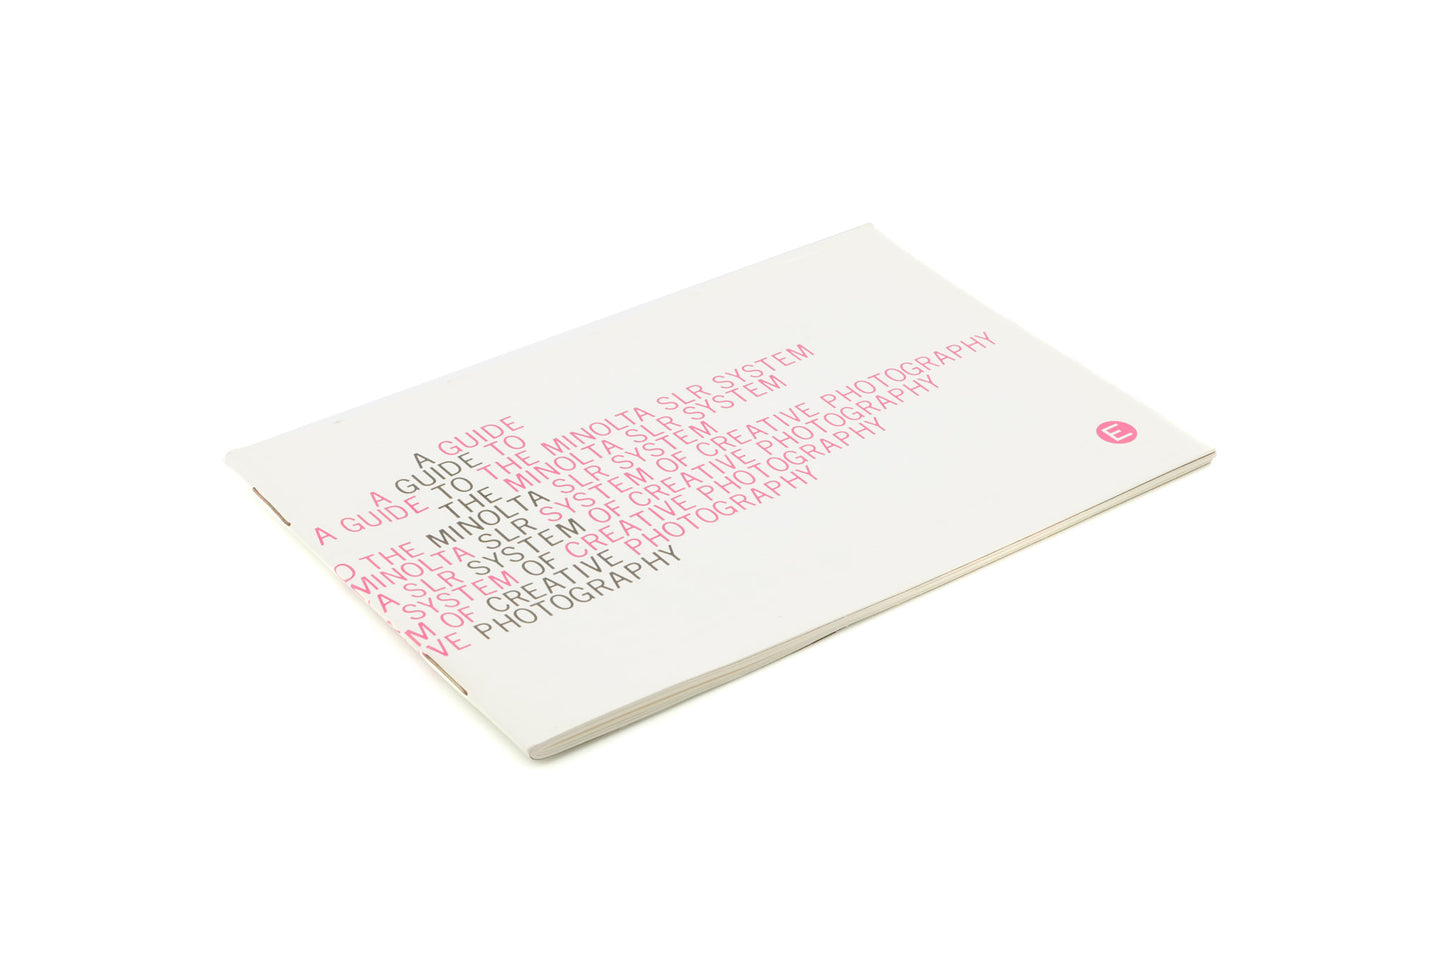 A GUIDE
A GUIDE TO
A GUIDE TO THE MINOLTA SLR SYSTEM
THE MINOLTA SLR SYSTEM
O THE MINOLTA SLR SYSTEM
MINOLTA SLR SYSTEM OF CREATIVE PHOTOGRAPHY
A SLR SYSTEM OF CREATIVE PHOTOGRAPHY
SYSTEM OF CREATIVE PHOTOGRAPHY
M OF CREATIVE PHOTOGRAPHY
VE PHOTOGRAPHY
E